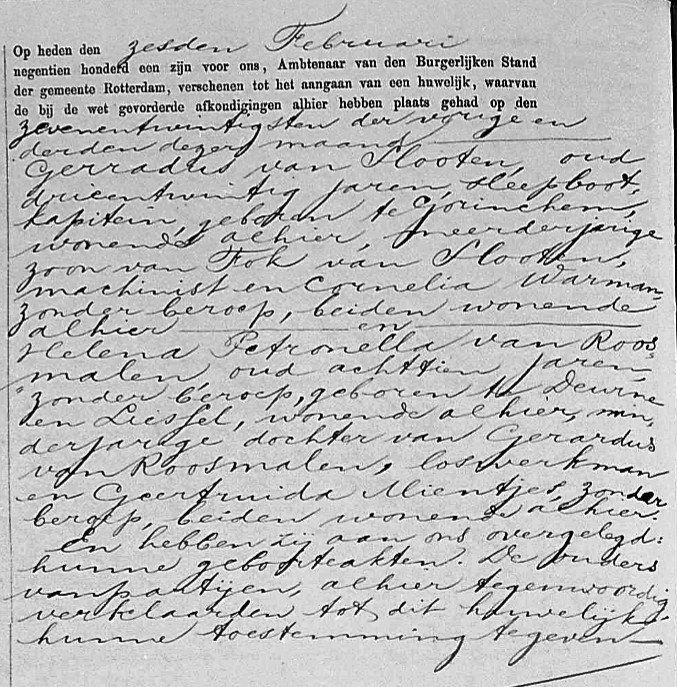 Op heden den zesden Februari
negentien honderd een zijn voor ons, Ambtenaar van den Burgerlijken Stand
der gemeente Rotterdam, verschenen tot het aangaan van een huwelijk, waarvan
de bij de wet gevorderde afkondigingen alhier hebben plaats gehad op den
zevenentwintigsten der vorige en
derden dezer maand
Gerradus van Slooten, oud
drieentwintig jaren, sleepboot-
kapitein, geboren te Gorinchem,
wonende alhier, meerderjarige
zoon van Fok van Slooten,
machinist en Cornelia Warman,
zonder beroep, beiden wonende
alhier en
Helena Petronella van Roos-
malen, oud achttien jaren,
zonder beroep, geboren te Deurne
en Liessel, wonende alhier, min-
derjarige dochter van Gerardus
van Roosmalen, loswerkman
en Geertruida Mientjes, zonder
beroep, beiden wonende alhier.
En hebben zij aan ons overgelegd:
hunne geboorteakten. De ouders
van partijen, alhier tegenwoordig,
verklaarden tot dit huwelijk
hunne toestemming te geven